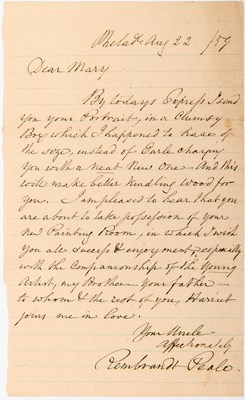 Philada Aug 22 /59
Dear Mary
By todays Express I send
you your Portrait, in a Clumsy
Box which I happened to have of
the size, instead of Earle charging
You with a neat New One - And this
will make better Kindling Wood for
you. I am pleased to hear that you
are about to take possession of your
new Painting Room, in which I wish
You all success & enjoyment, especially
with the Companionship of the Young
Artist, my Brother - Your father -
to whom & the rest of you, Harriet
joins me in love.
Your Uncle
affectionately
Rembrandt Peale.